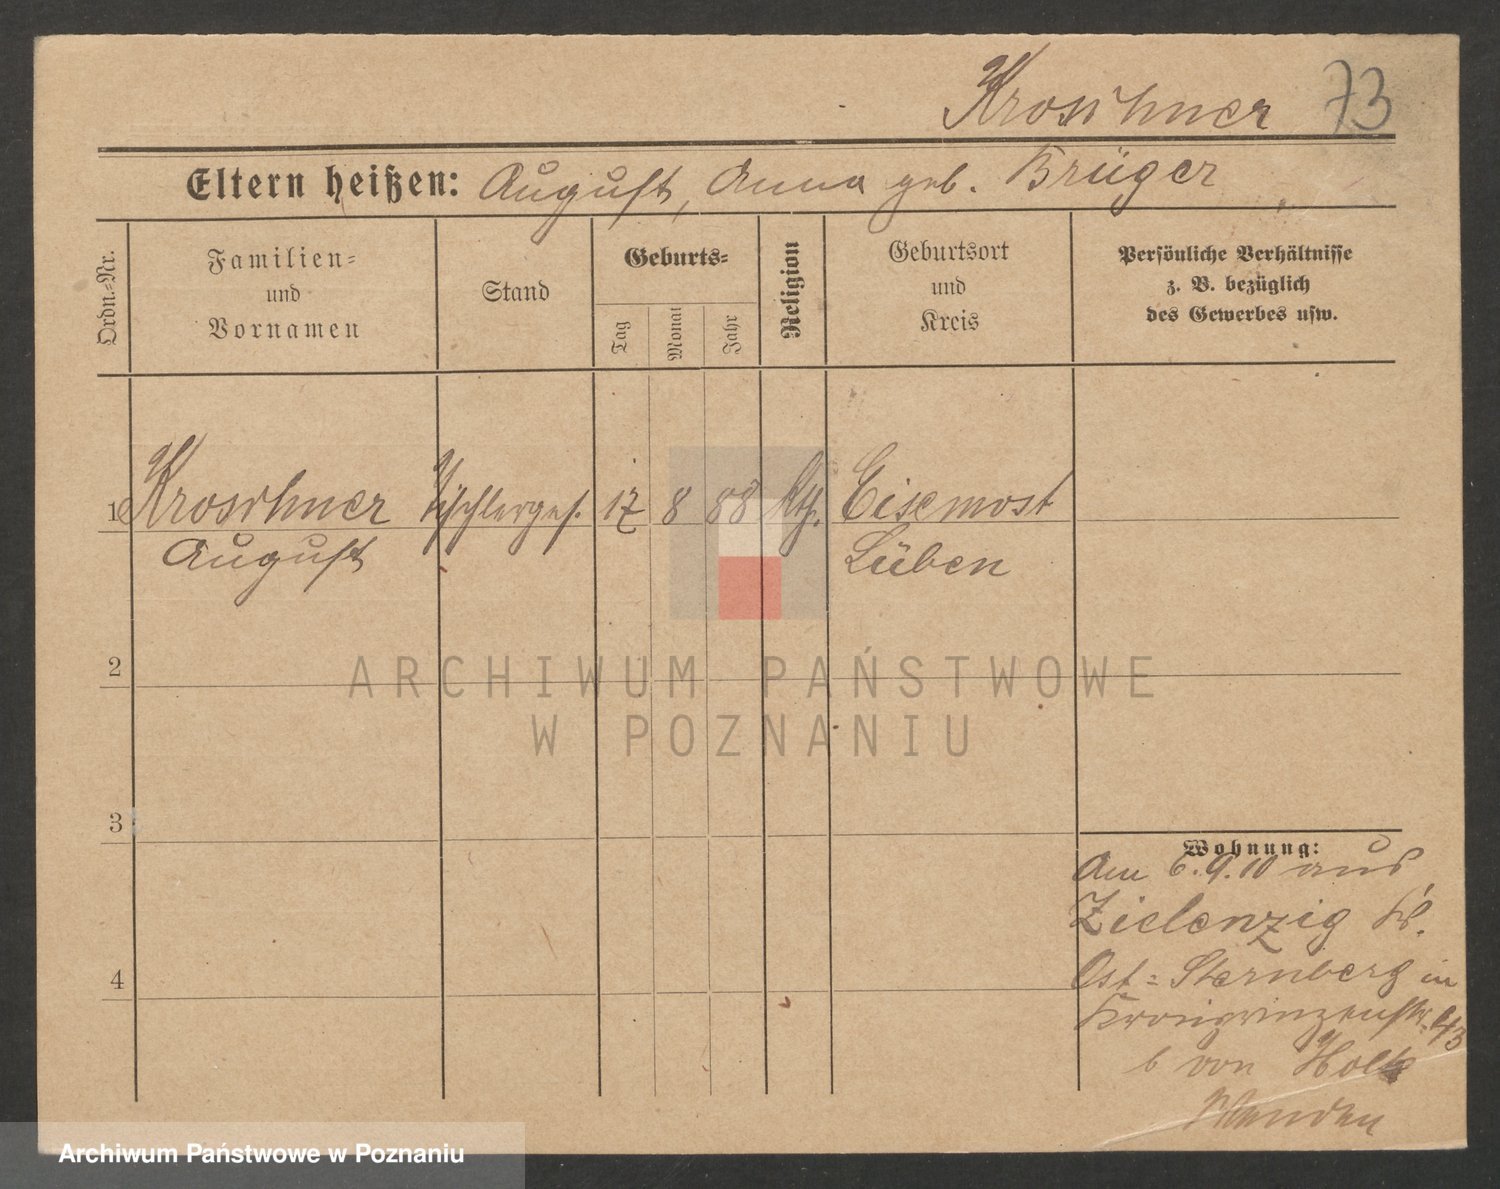 Kroschner 73
Eltern heißen: August, Anna geb. Krüger
Ordn.-Nr.
Familien-
und
Vornamen
Stand
Geburts-
Tag
Monat
Jahr
Religion
Geburtsort
und
Kreis
Persönliche Verhältnisse
z. B. bezüglich
des Gewerbes usw.
1 Kroschner Tischlerges. 17 8 88 kth. Eisemost
August Lüben
2
ARCHIWUM PAŃSTWOWE
W POZNANIU
3
Wohnung:
Am 6.9.10 aus
Zielenzig Kr.
4
Ost-Sternberg in
Kronprinzenstr. 43
b von Holt
Wenden
Archiwum Państwowe w Poznaniu